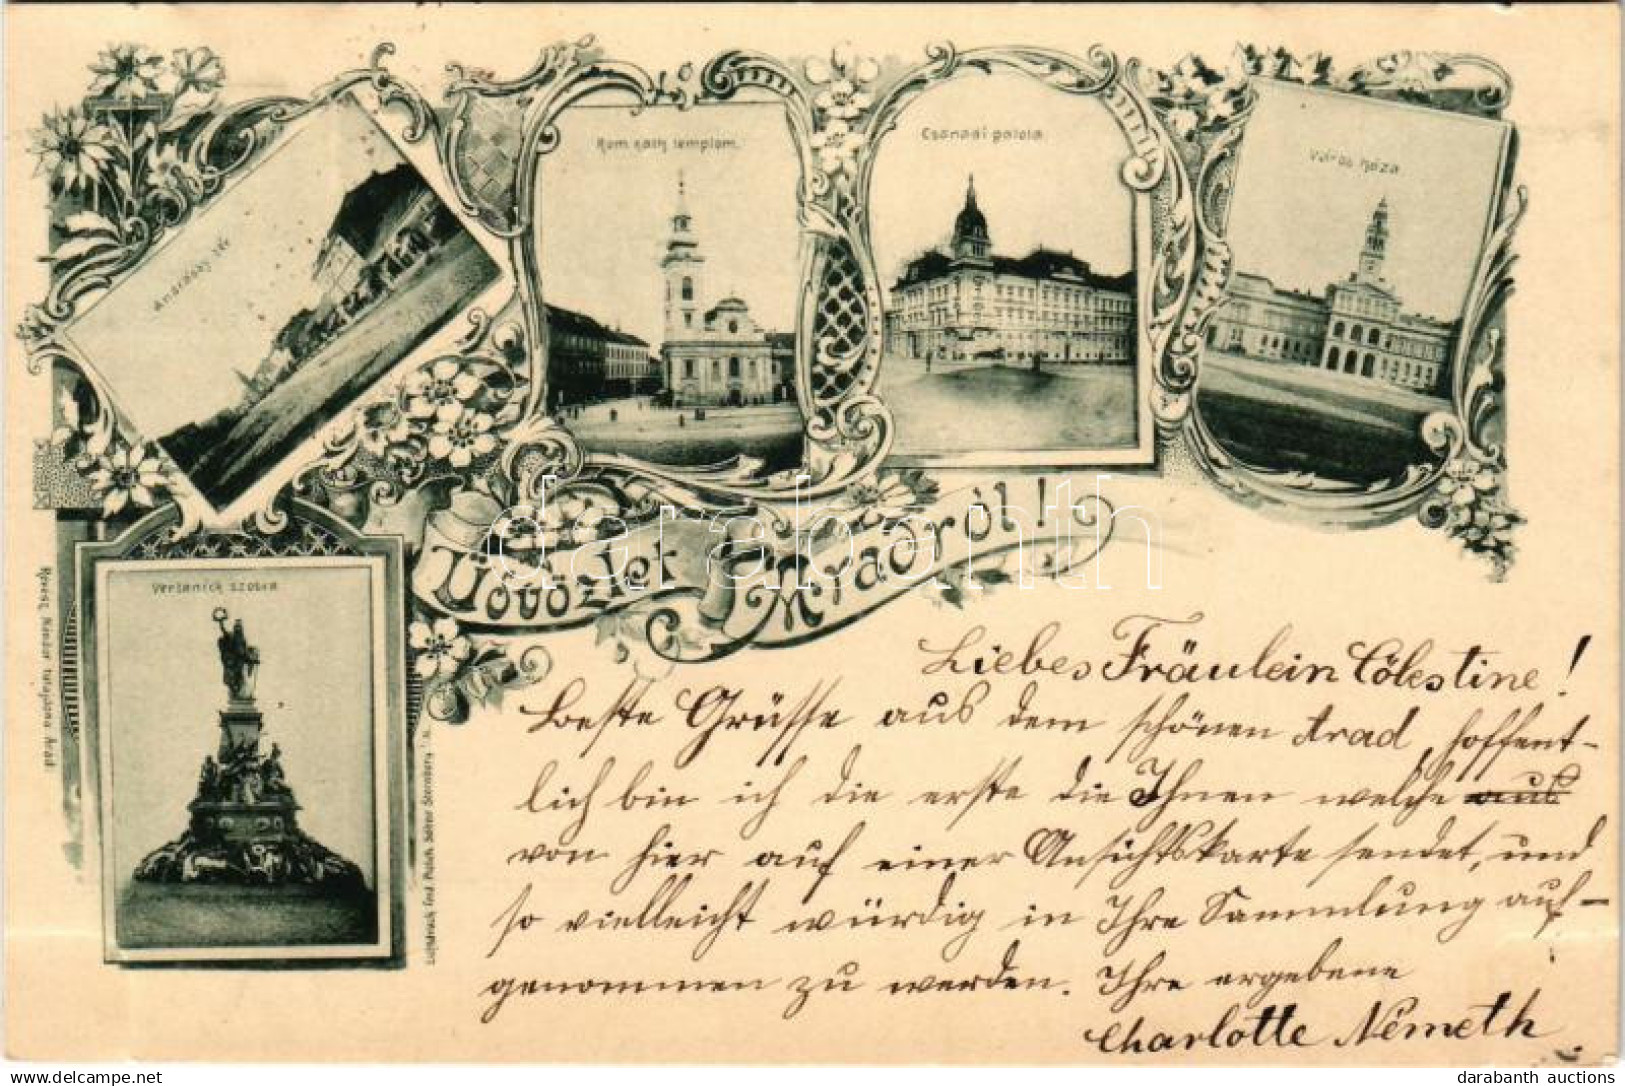 Andrássy tér
Rom. kath. templom.
Csanádi palota
Városháza
Vértanúk szobra
Üdvözlet Aradról!
darabanth
Liebes Fräulein Cölestine!
Beste Grüsse aus dem schönen Arad, hoffent-
lich bin ich die erste die Ihnen welche aus
von hier auf einer Ansichtskarte sendet, und
so vielleicht würdig in Ihre Sammlung auf-
genommen zu werden. Ihre ergebene
Charlotte Németh
darabanth auctions
www.delcampe.net